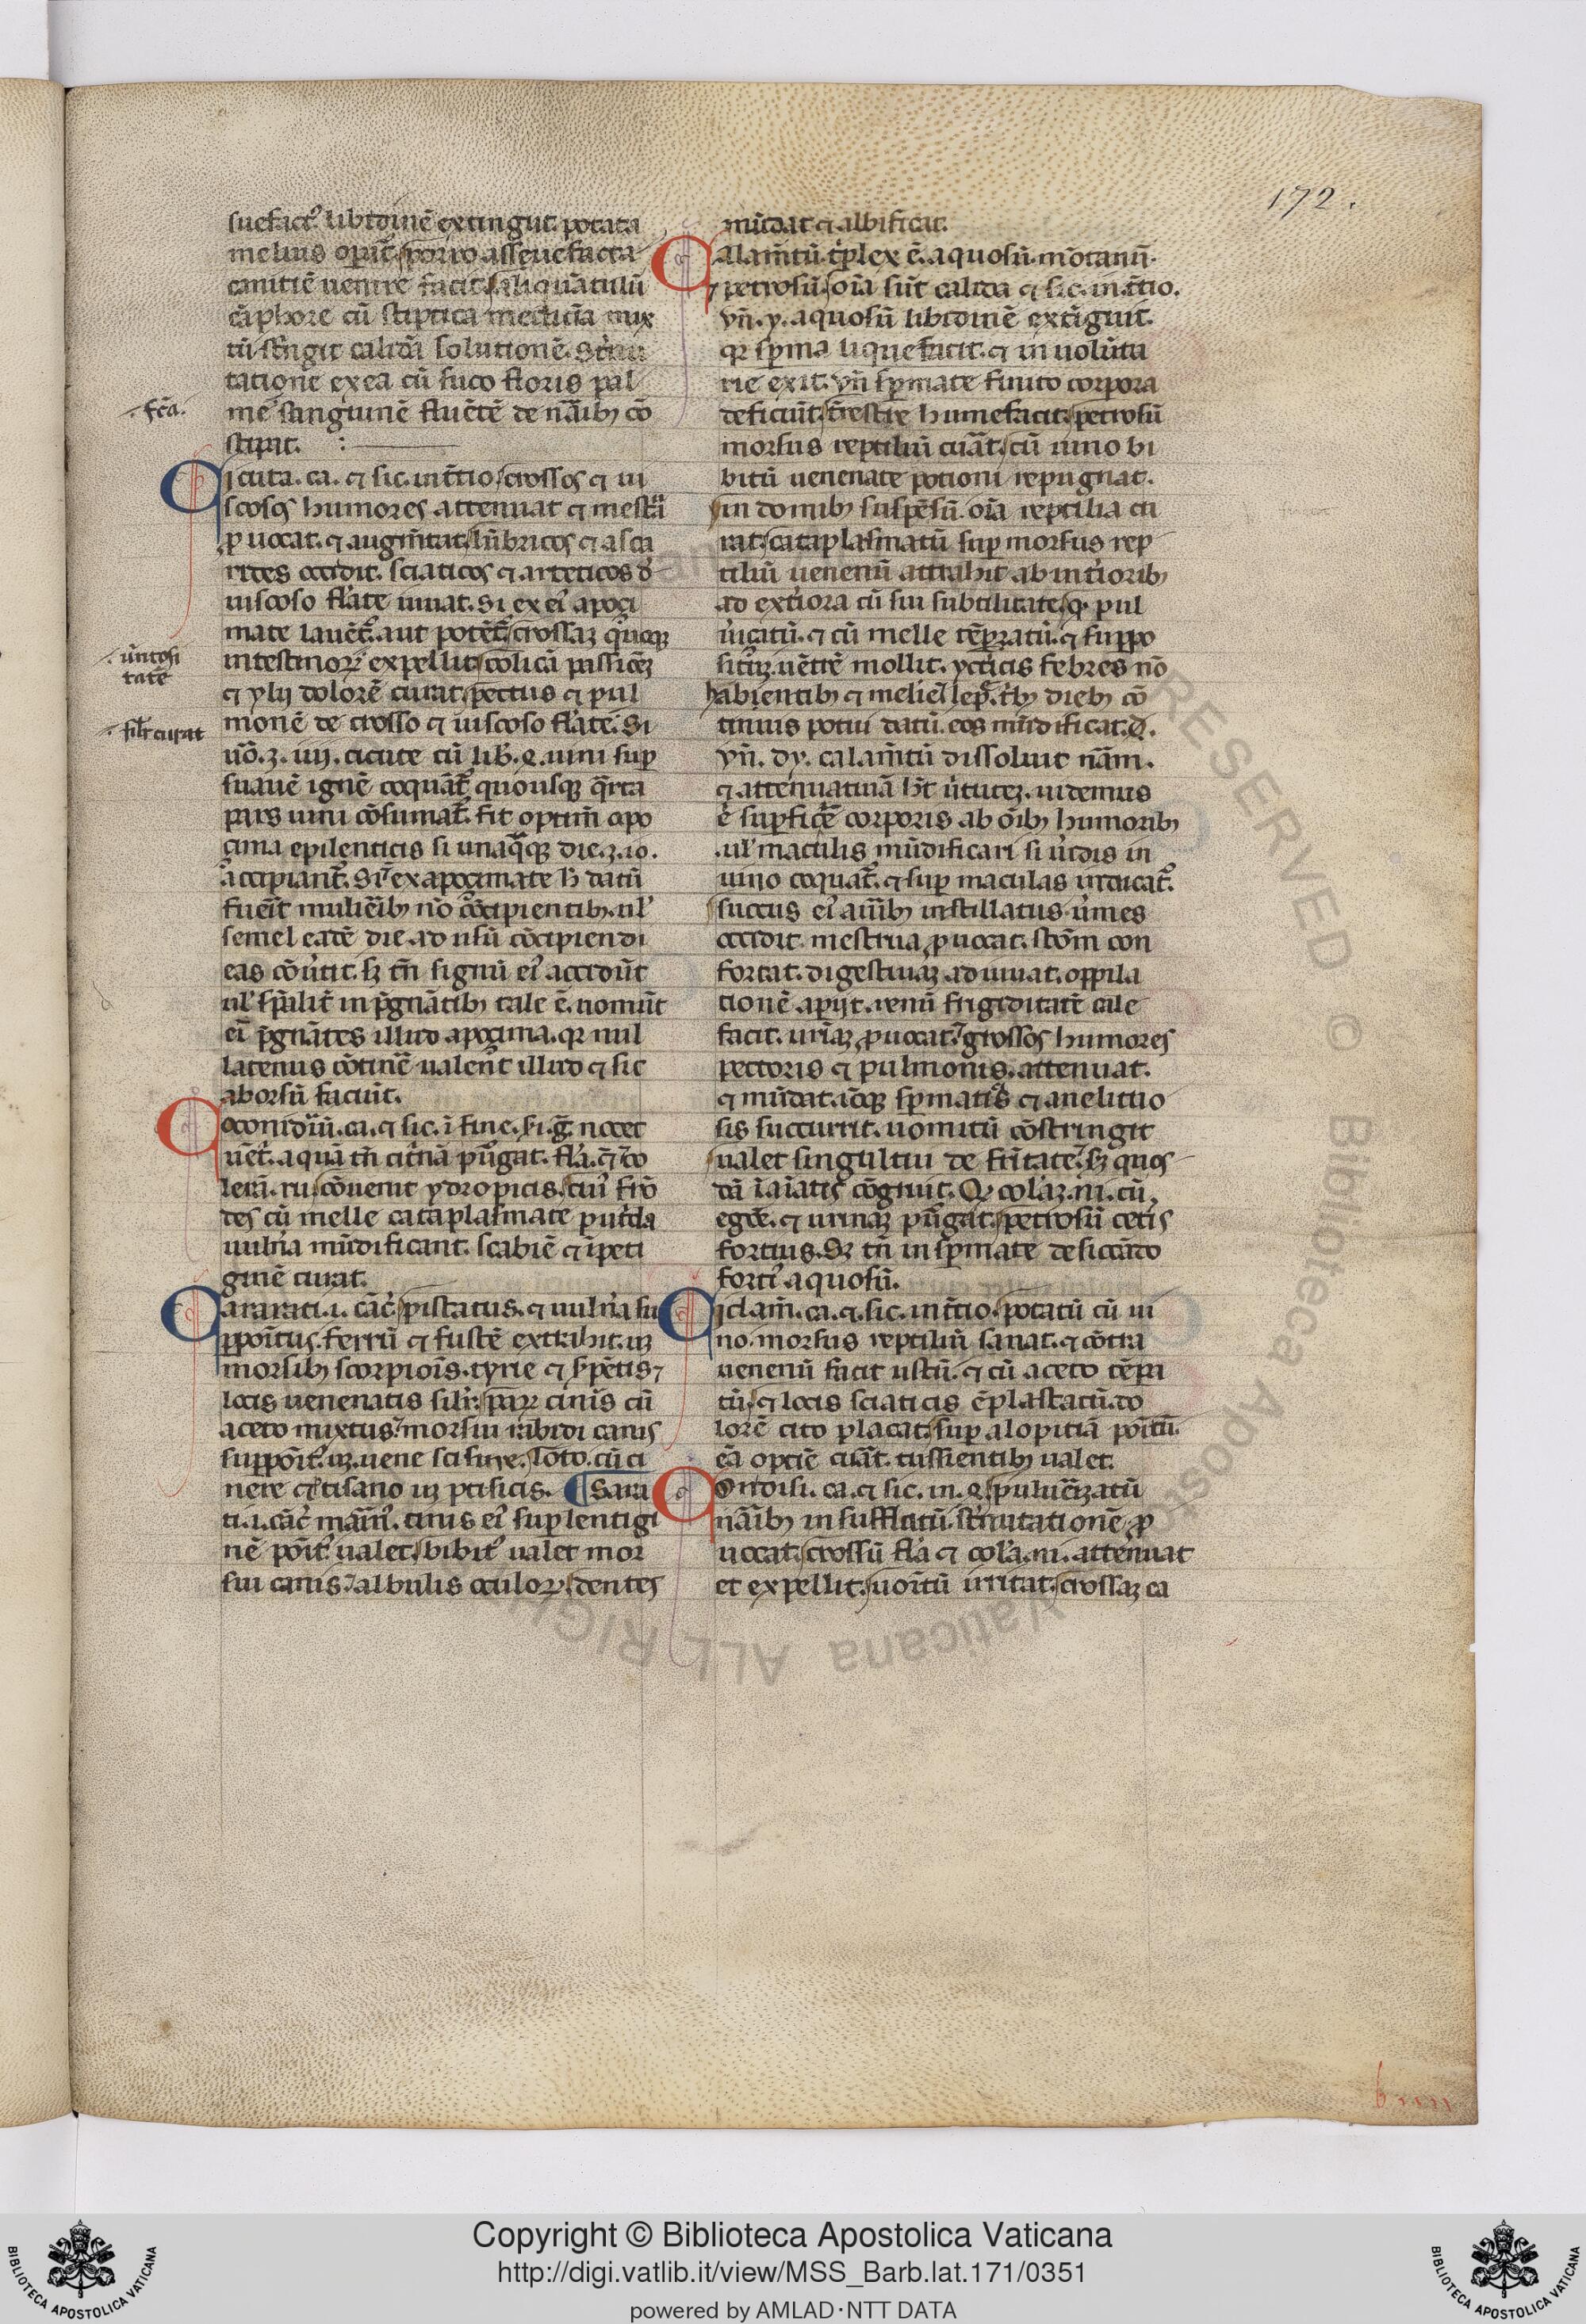 172.
suefact᷒ libidinē extinguit. potata
melius opat̄. porro assuefacta
canitiē uenire facit. aliquātulū
cāphore cū stiptica medicīa mix
tū strīgit calidā solutionē. St̄nu
tatione ex ea cū suco floris pal
me sanguinē fluētē de narib; cō
stipat.
Cicuta. ca. ⁊ sic. in t̄tio. crossos ⁊ ui
scosos humores attenuat ⁊ mestrua
ꝓuocat. ⁊ augm̄tat. lūbricos ⁊ asca
rides occidit. sciaticos ⁊ arteticos d̄
uiscoso flate iuuat. Si ex ei᷒ apoci
mate lauēt᷒. aut potēt᷒. crossaz
intestinoꝝ expellit. colicā passiōez
⁊ ylij dolorē curat. pectus ⁊ pul
monē de crosso ⁊ uiscoso flate. Si
uō. ʒ. iiij. cicute cū lib. uini sup̄
suauē ignē coquāt᷒ quousq; q̄rta
pars uini cōsumat᷒. fit optim̄ apo
cima epilenticis si unaq̄q; die. ʒ. io.
accipiant᷒. Si ex apocimate h̄ datū
fuerit mulierib; nō cōcipientib; ul᷒
semel eadē die. ad usū cōcipiendi
eas cōu̾tit. sꝫ tn̄ signū ei᷒ accidūt
ul᷒ sp̄alit̄ in p̄gnātib; tale ē. uomūt
ei᷒ p̄gnātes illud apocima. qꝛ nul
latenus cōtinē ualent illud ⁊ sic
aborsū faciūt.
Coconidiū. ca. ⁊ sic. i fine. iii. g̃. nocet
uēt̄. aquā tn̄ cit̾nā pu̾gat. fla. ⁊ co
lerā. ru. cōuenit ydropicis. cui᷒ frō
des cū melle cataplasmate putrida
uuln̾a mūdificant. scabiē ⁊ īpeti
ginē curat.
Cararati. i. cāc̄. pistatus. ⁊ uuln̾a su
ꝑpoītus. ferrū ⁊ fustē extrahit. iuꝫ
morsib; scorpiois. tyrie ⁊ sp̄ētis. ⁊
locis uenenatis silr̄. paꝝ cin̾is cū
aceto mixtus. morsui rabidi canis
suppōit᷒. iuꝫ. uene
nere ⁊ tisano iuꝫ ptisicis. ¶ Sara
ti. i. cāc̄ marin᷒. cinis ei᷒ sup̄ lentigi
nē pōit᷒ ualet. bibit᷒ ualet mor
sui canis. albulis oculoꝝ. dentes
fēa.
u̾ntosi
tatē
silr̄ curat
mūdat ⁊ albificat.
Calam̄tū. t̾plex ē. aquosū. mōtanū.
⁊ petrosū. oīa sūt calida ⁊ sic. in t̄tio.
Vn̄. y. aquosū libidinē extīguit.
qꝛ sp̄ma liquefacit. ⁊ in uolūta
rie exit. vn̄ sp̄mate finito corpora
deficiūt. t̾restre humefacit. petrosū
morsus reptiliū curāt. cū uino bi
bitū uenenate potioni repugnat.
in domib; suspēsū. oīa reptilia cu
rat. cataplasmatū sup̄ morsus rep
tiliū uenenū attrahit ab int̾iorib;
ad ext̾iora cū sui subtilitate. pul
u̾icatū. ⁊ cū melle tēꝑatū. ⁊ suppo
sitū. uētrē mollit. yctericis febres nō
habientib; ⁊ meliel. lepra t̾b; dieb; cō
tinuis potui datū. eos mūdificat.
Vn̄. dy. calam̄tū dissoluit nām.
⁊ attenuatiuā h̄t u̾tutez. uidemus
ē sup̄ficiē corporis ab oīb; humorib;
ul᷒ maculis mūdificari si u̾idis in
uino coquat᷒. ⁊ sup̄ maculas urdicat᷒.
succus ei᷒ aurib; instillatus u̾mes
occidit. mestrua ꝓuocat. stōm con
fortat. digestiuaꝫ adiuuat. oppila
tionē aperit. renū frigiditatē cale
facit. urinaꝫ ꝓuocat. grossos humores
pectoris ⁊ pulmonis. attenuat.
⁊ mūdat. idēq; sp̄maticis ⁊ anelituo
sis succurrit. uomitū cōstringit
ualet singultui de frītate. sꝫ quos
dā ianiatis cōgruit. Qꝛ colaꝫ. ni. cū
egđē. ⁊ urinaꝫ pu̾gat. petrosū cet̾is
fortius. Sꝫ tn̄ in sp̄mate desiccādo
fortī aquosū.
Ciclam̄. ca. ⁊ sic. in t̄tio. potatū cū ui
no. morsus reptiliū sanat. ⁊ cōtra
uenenū facit ustū. ⁊ cū aceto tēpa
tū. ⁊ locis sciaticis ēplastatū. do
lorē cito placat. sup̄ alopitiā pōitū
eā optiē curat. tussientib; ualet.
Condisi. ca. ⁊ sic. in. puluerizatū
narib; insufflatū. st̾nutationē ꝓ
uocat. crossū fla ⁊ cola. ni. attenuat
et expellit. uoitū irritat. crossaꝫ ca
Copyright © Biblioteca Apostolica Vaticana
http://digi.vatlib.it/view/MSS_Barb.lat.171/0351
powered by AMLAD·NTT DATA
BIBLIOTECA APOSTOLICA VATICANA
BIBLIOTECA APOSTOLICA VATICANA